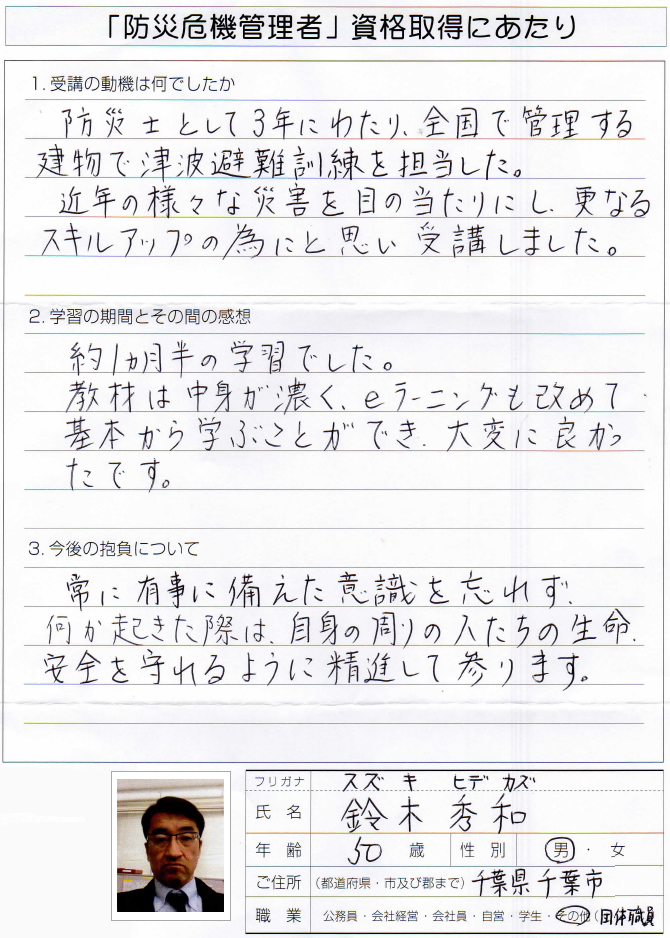 「防災危機管理者」資格取得にあたり
1. 受講の動機は何でしたか
防災士として3年にわたり、全国で管理する
建物で津波避難訓練を担当した。
近年の様々な災害を目の当たりにし、更なる
スキルアップの為にと思い受講しました。
2. 学習の期間とその間の感想
約1カ月半の学習でした。
教材は中身が濃く、eラーニングも改めて
基本から学ぶことができ、大変に良かっ
たです。
3. 今後の抱負について
常に有事に備えた意識を忘れず、
何か起きた際は、自身の周りの人たちの生命、
安全を守れるように精進して参ります。
フリガナ スズキ ヒデカズ
氏名 鈴木秀和
年齢 50 歳 性別 男・女
ご住所 (都道府県・市及び郡まで) 千葉県千葉市
職業 公務員・会社経営・会社員・自営・学生・その他( 団体職員